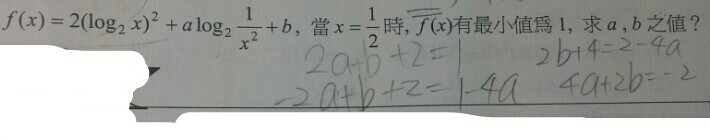 f(x) = 2(log₂ x)² + a log₂ 1/x² + b, 當 x = 1/2 時, f(x)有最小值為 1, 求 a , b 之值?
2a+b+2=1 2b+4=2-4a
-2a+b+2=1-4a 4a+2b=-2